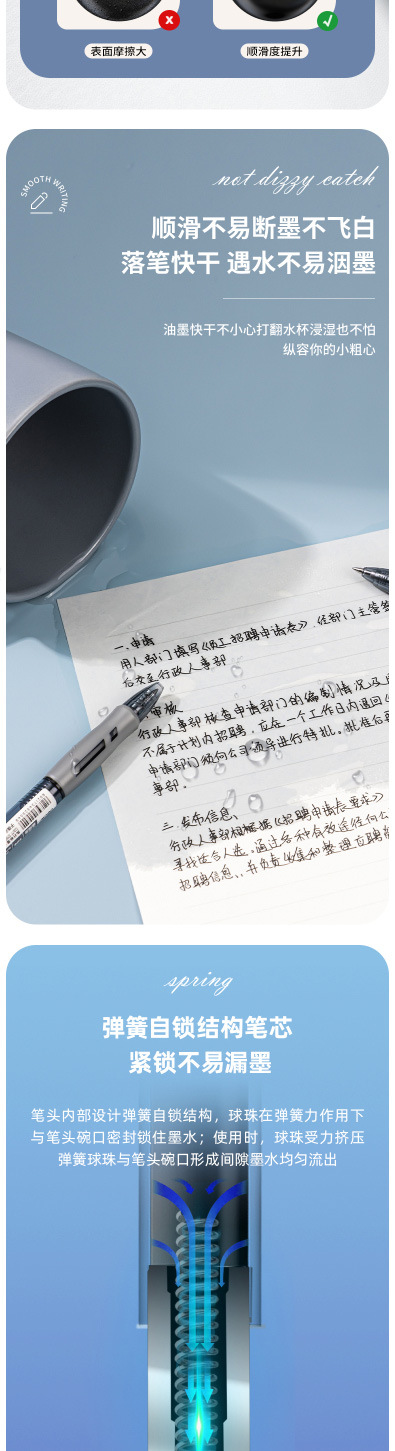 表面摩擦大
顺滑度提升
SMOOTH WRITING
not dizzy catch
顺滑不易断墨不飞白
落笔快干 遇水不易洇墨
油墨快干不小心打翻水杯浸湿也不怕
纵容你的小粗心
一.申请
用人部门填写《员工招聘申请表》.经部门主管签
后交至行政人事部
审核
行政人事部核查申请部门的编制情况及
不属于计划内招聘,应在一个工作日内退回
申请部门须向公司领导进行特批。批准后
事部.
三.发布信息、
行政人事部根据《招聘申请表要求》
寻找适合人选。通过各种有效途径向公
招聘信息、并负责收集和整理应聘
spring
弹簧自锁结构笔芯
紧锁不易漏墨
笔头内部设计弹簧自锁结构，球珠在弹簧力作用下
与笔头碗口密封锁住墨水；使用时，球珠受力挤压
弹簧球珠与笔头碗口形成间隙墨水均匀流出